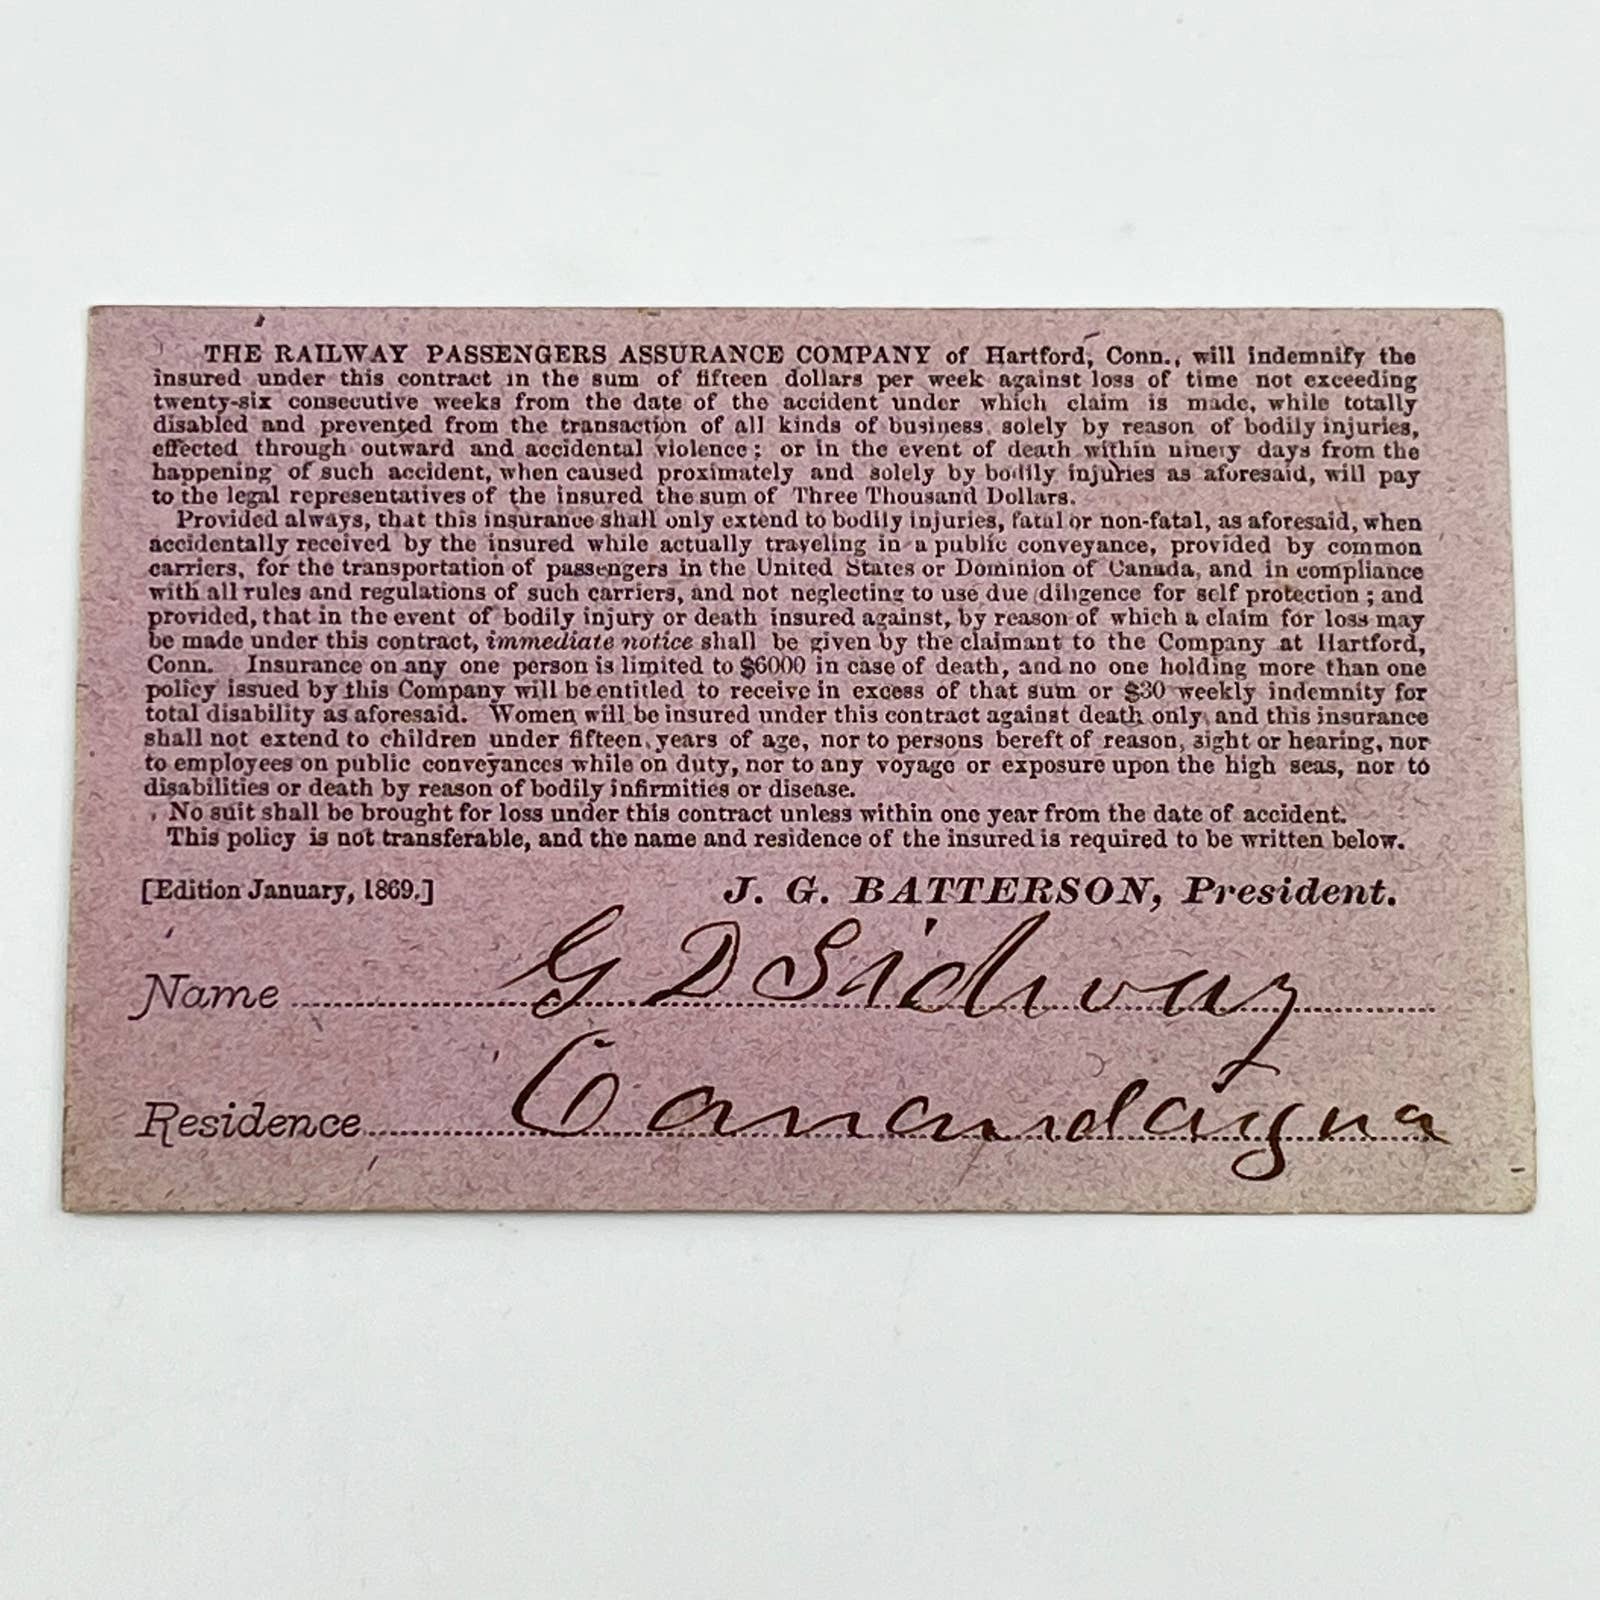 THE RAILWAY PASSENGERS ASSURANCE COMPANY of Hartford, Conn., will indemnify the
insured under this contract in the sum of fifteen dollars per week against loss of time not exceeding
twenty-six consecutive weeks from the date of the accident under which claim is made, while totally
disabled and prevented from the transaction of all kinds of business solely by reason of bodily injuries,
effected through outward and accidental violence; or in the event of death within ninety days from the
happening of such accident, when caused proximately and solely by bodily injuries as aforesaid, will pay
to the legal representatives of the insured the sum of Three Thousand Dollars.
Provided always, that this insurance shall only extend to bodily injuries, fatal or non-fatal, as aforesaid, when
accidentally received by the insured while actually traveling in a public conveyance, provided by common
carriers, for the transportation of passengers in the United States or Dominion of Canada, and in compliance
with all rules and regulations of such carriers, and not neglecting to use due diligence for self protection; and
provided, that in the event of bodily injury or death insured against, by reason of which a claim for loss may
be made under this contract, immediate notice shall be given by the claimant to the Company at Hartford,
Conn. Insurance on any one person is limited to $6000 in case of death, and no one holding more than one
policy issued by this Company will be entitled to receive in excess of that sum or $30 weekly indemnity for
total disability as aforesaid. Women will be insured under this contract against death only, and this insurance
shall not extend to children under fifteen years of age, nor to persons bereft of reason, sight or hearing, nor
to employees on public conveyances while on duty, nor to any voyage or exposure upon the high seas, nor to
disabilities or death by reason of bodily infirmities or disease.
No suit shall be brought for loss under this contract unless within one year from the date of accident.
This policy is not transferable, and the name and residence of the insured is required to be written below.
[Edition January, 1869.] J. G. BATTERSON, President.
Name G D Sidway
Residence Canandaigua